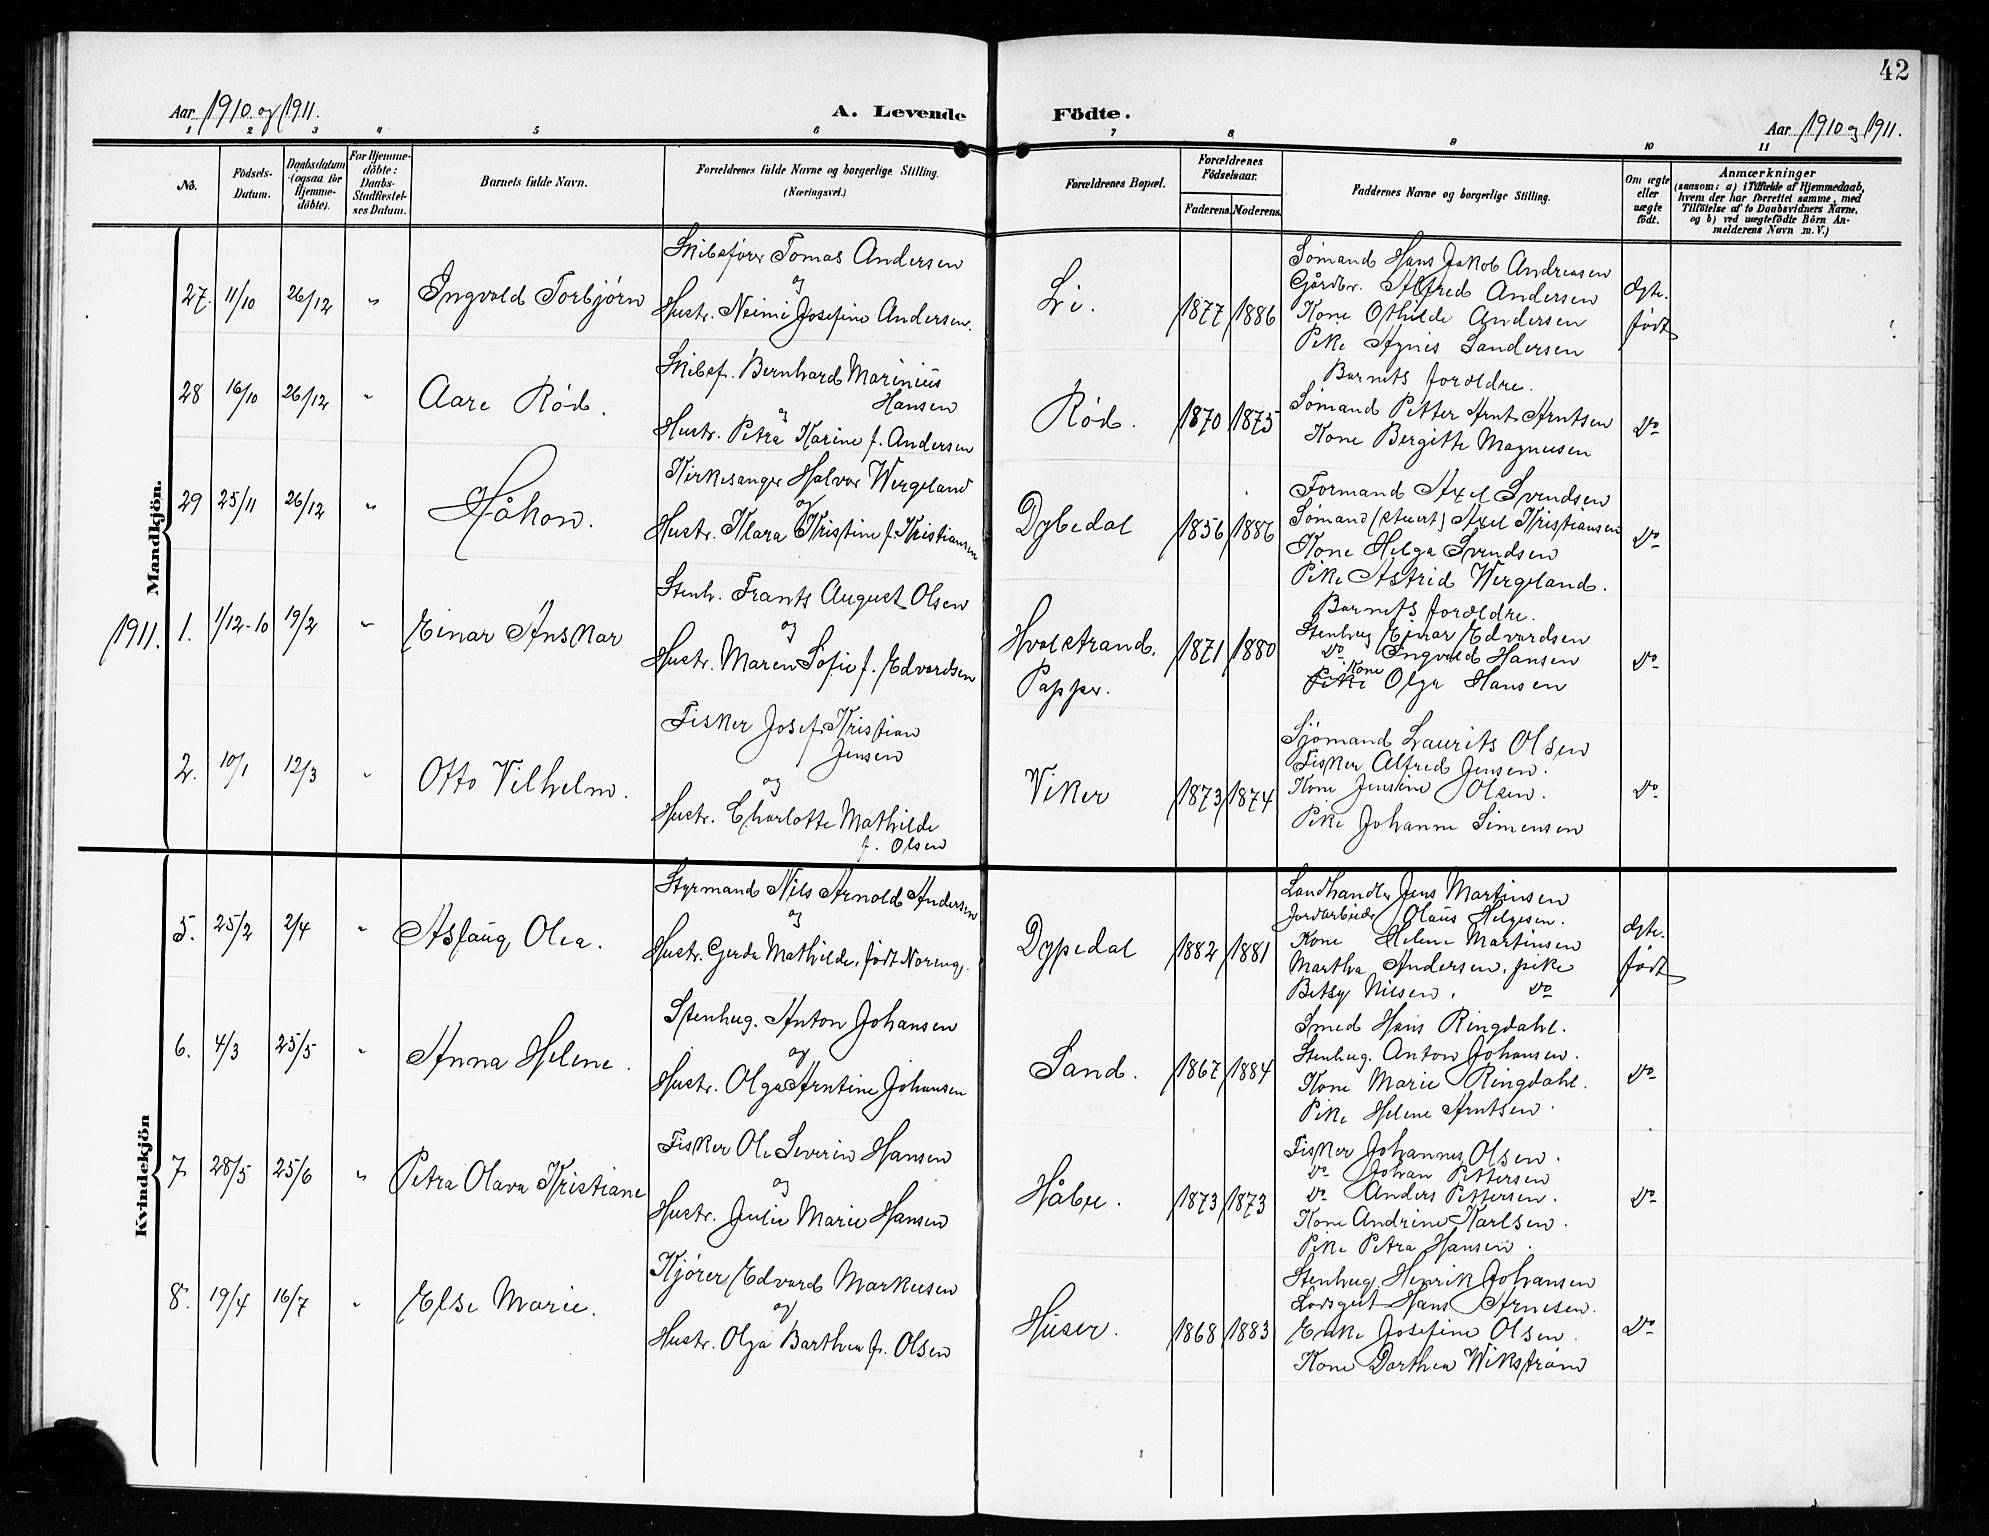 42
Aar 1910 og 1911.
A. Levende Födte.
Aar 1910 og 1911.
1 2 3 4 5 6 7 8 9 10 11
No.
Födsels-Datum.
Daabsdatum (ogsaa for Hjemme-döbte).
For Hjemme-döbte: Daabs-Stadfæstel-ses Datum.
Barnets fulde Navn.
Forældrenes fulde Navne og borgerlige Stilling. (Næringsvei.)
Forældrenes Bopæl.
Forældrenes Födselsaar.
Faderens. Moderens.
Faddernes Navne og borgerlige Stilling.
Om ægte eller uægte födt.
Anmærkninger
(saasom: a) i Tilfælde af Hjemmedaab,
hvem der har forrettet samme, med
Tilföielse af to Daabsvidners Navne,
og b) ved uægtefödte Börn An-
melderens Navn m. V.)
Mandkjön.
27. 11/10 26/12 " Ingvald Torbjørn
Skibsfører Tomas Andersen
og
Hustr. Neimi Josefine Andersen.
Li. 1877 1886
Sømand Hans Jakob Andreasen
Gårdbr. Alfred Andersen
Kone Othilde Andersen
Pike Agnes Sandersen
Ægte-
født
28 16/10 26/12 " Aare Rød.
Skibsf. Bernhard Marinius
Hansen
og
Hustr. Petra Karine f. Andersen
Rød. 1870 1875
Barnets foreldre.
Sømand Petter Arnt Arntsen
Kone Bergitte Magnusen
Do
29 25/11 26/12 " Håkon.
Kirkesanger Halvor Wergeland
og
Hustr. Klara Kristine f. Kristiansen
Dypedal 1856 1886
Formand Axel Svendsen
Sømand (stuert) Axel Kristiansen
Kone Helga Svendsen
Pike Astrid Wergeland.
Do
1911. 1. 1/12-10 19/2 " Einar Anskar
Stenh. Frants August Olsen
og
Hustr. Maren Sofie f. Edvardsen
Hvalstrand.
Papper.
1871 1880
Barnets foreldre.
Stenhug Einar Edvardsen
Do Ingvald Hansen
Kone
Pike Olga Hansen
Do
2. 10/1 12/3 " Otto Vilhelm.
Fisker Josef Kristian
Jensen
og
Hustr. Charlotte Mathilde
f. Olsen
Viker 1873 1874
Sjømand Laurits Olsen
Fisker Alfred Jensen.
Kone Jensine Olsen.
Pike Johanne Simensen
Do
Kvindekjön
5. 25/2 2/4 " Aslaug Olea.
Styrmand Nils Arnold Andersen
og
Hustr. Gerda Mathilde, født Noreng.
Dypedal 1882 1881
Landhandler Jens Martinsen
Jordarbeider Olaus Helgesen.
Kone Helene Martinsen
Martha Andersen, pike
Betsy Nilsen, Do
Ægte-
født
6. 4/3 25/5 " Anna Helene.
Stenhug. Anton Johansen
og
Hustr. Olga Arntine Johansen
Sand. 1867 1884
Smed Hans Ringdahl.
Stenhug. Anton Johansen.
Kone Marie Ringdahl.
Pike Helene Arntsen.
Do
7 28/5 25/6 " Petra Olava Kristiane
Fisker Ole Severin Hansen
og
Hustr. Julie Marie Hansen
Håbu. 1873 1873
Fisker Johannes Olsen.
Do Johan Pettersen
Do Anders Pettersen.
Kone Andrine Karlsen.
Pike Petra Hansen.
Do
8. 19/4 16/7 " Else Marie.
Kjører Edvard Markusen
og
Hustr. Olga Barthea f. Olsen
Huser. 1868 1883
Stenhug Henrik Johansen
Losgut Hans Arnesen.
Enke Josefine Olsen.
Kone Dorthea Wikstrøm
Do